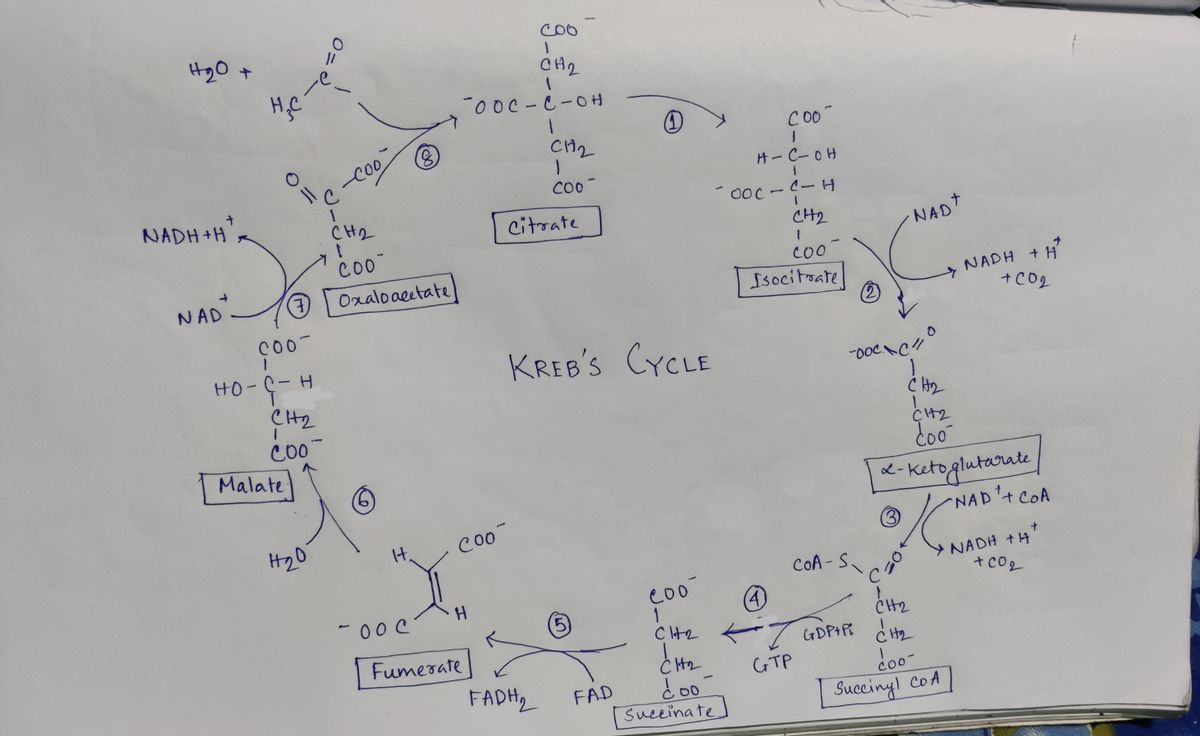 H2O +
H3C
C
O
COO⁻
CH2
⁻OOC-C-OH
CH2
COO⁻
Citrate
①
COO⁻
H-C-OH
⁻OOC-C-H
CH2
COO⁻
Isocitrate
②
NAD⁺
NADH + H⁺
+ CO2
⁻OOC
C
O
CH2
CH2
COO⁻
α-Ketoglutarate
③
NAD⁺ + CoA
NADH + H⁺
+ CO2
CoA-S
C
O
CH2
CH2
COO⁻
Succinyl CoA
④
GDP+Pi
GTP
COO⁻
CH2
CH2
COO⁻
Succinate
⑤
FAD
FADH2
H
COO⁻
⁻OOC
H
Fumerate
⑥
H2O
COO⁻
HO-C-H
CH2
COO⁻
Malate
⑦
NAD⁺
NADH+H⁺
O
C
COO⁻
CH2
COO⁻
Oxaloacetate
⑧
KREB'S CYCLE